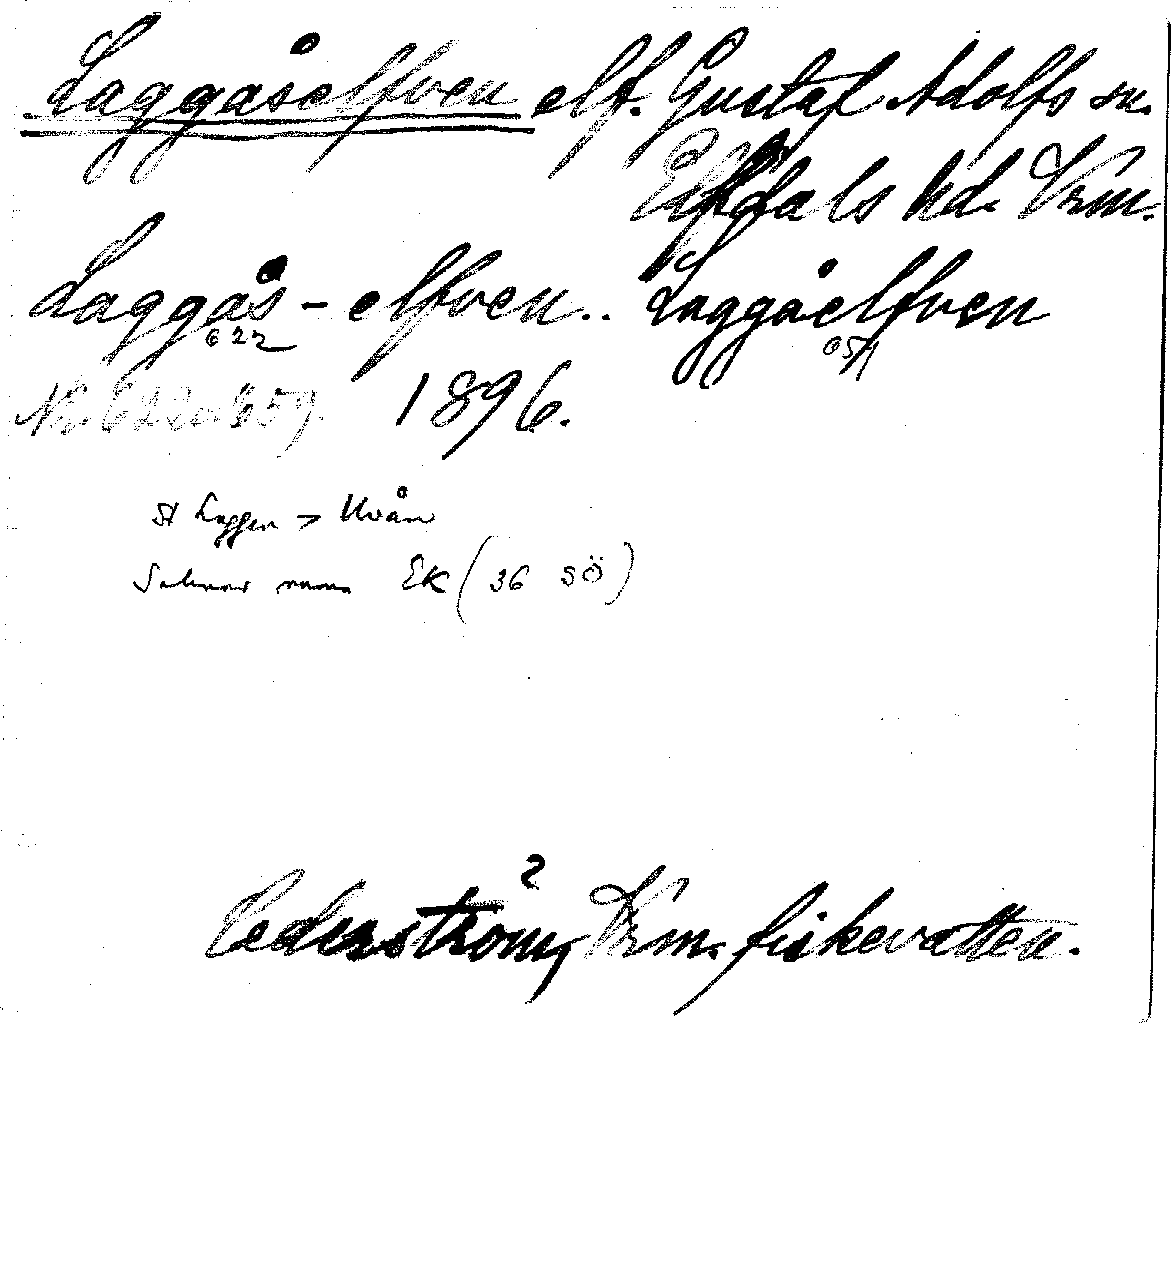 Laggåselfven elf. Gustaf Adolfs sn.
Elfdals hd. Vrm.
Laggås-elfven.. Laggåelfven
622 659
Nr. 622 o. 659. 1896.
St Laggen → Uvån
Saknar namn EK (36 SÖ)
2
Cederström, Vrm. fiskevatten.